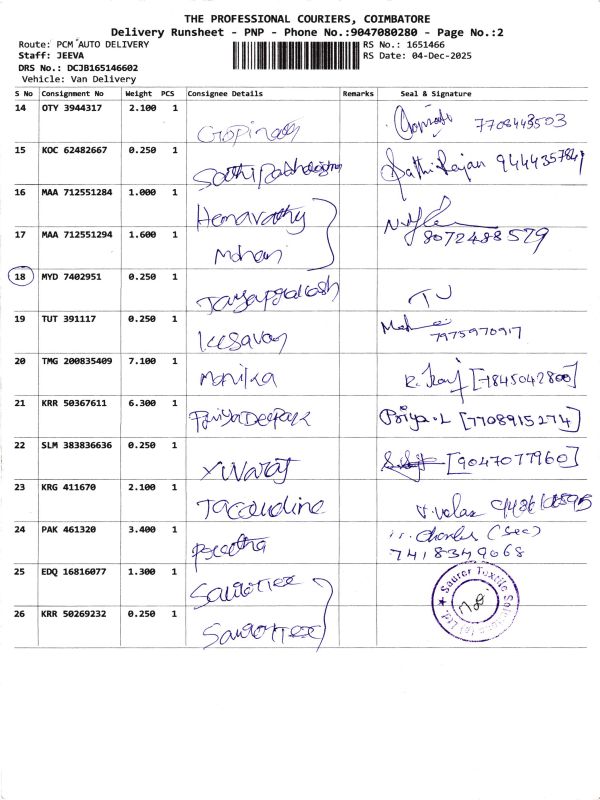 THE PROFESSIONAL COURIERS, COIMBATORE
Delivery Runsheet - PNP - Phone No.:9047080280 - Page No.:2
Route: PCM AUTO DELIVERY
Staff: JEEVA
DRS No.: DCJB165146602
Vehicle: Van Delivery
RS No.: 1651466
RS Date: 04-Dec-2025
S No Consignment No Weight PCS Consignee Details Remarks Seal & Signature
14 OTY 3944317 2.100 1 Gopinath 7708443503
15 KOC 62482667 0.250 1 Sathi Rajan
16 MAA 712551284 1.000 1 Hemavathy
17 MAA 712551294 1.600 1 Mohan 8072488579
18 MYD 7402951 0.250 1 Jayaprakash TJ
19 TUT 391117 0.250 1 Kesavan 7975970917
20 TMG 200835409 7.100 1 Monika [7845042800]
21 KRR 50367611 6.300 1 PriyaDeepak Priya.L [7708915274]
22 SLM 383836636 0.250 1 Yuvaraj [9047077960]
23 KRG 411670 2.100 1
24 PAK 461320 3.400 1 Preetha Charles (sec)
7418349068
25 EDQ 16816077 1.300 1
26 KRR 50269232 0.250 1
Saurer Textile